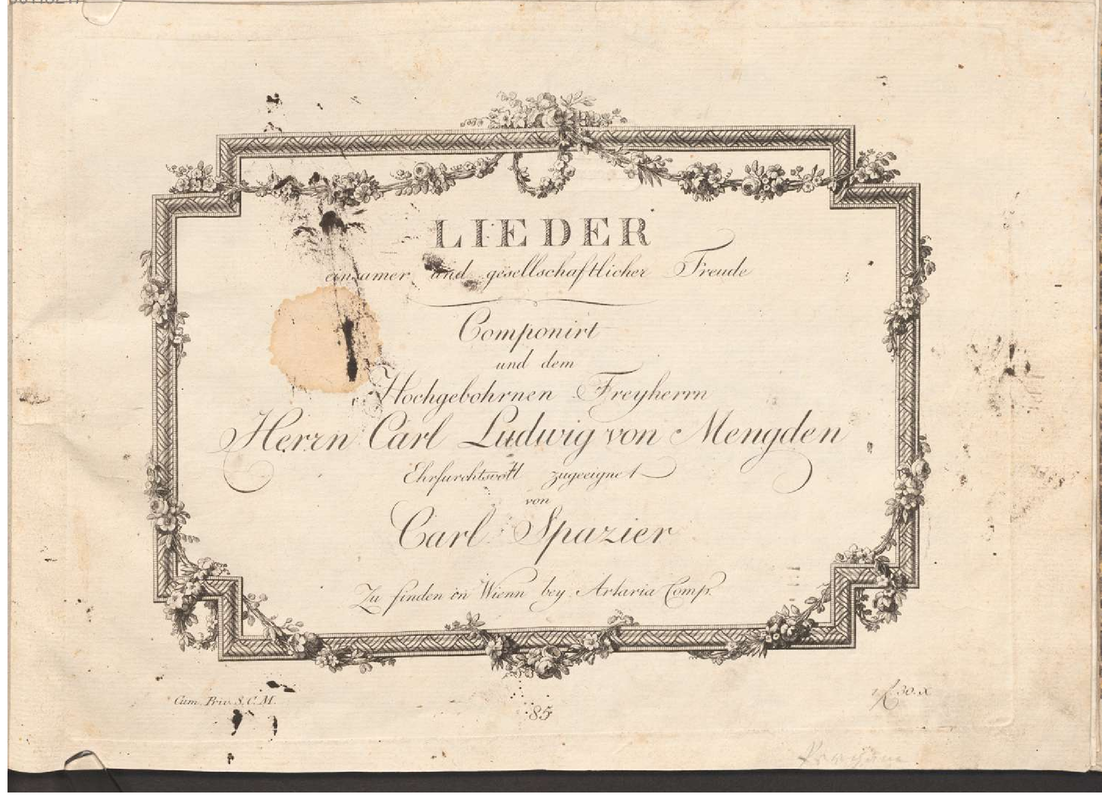 LIEDER
einsamer und gesellschaftlicher Freude
Componirt
und dem
Hochgebohrnen Freyherrn
Herrn Carl Ludwig von Mengden
Ehrfurchtsvoll zugeeignet
von
Carl Spazier
Zu finden in Wienn bey Artaria Comp.
Cum. Priv. S. C. M.
85
30. x